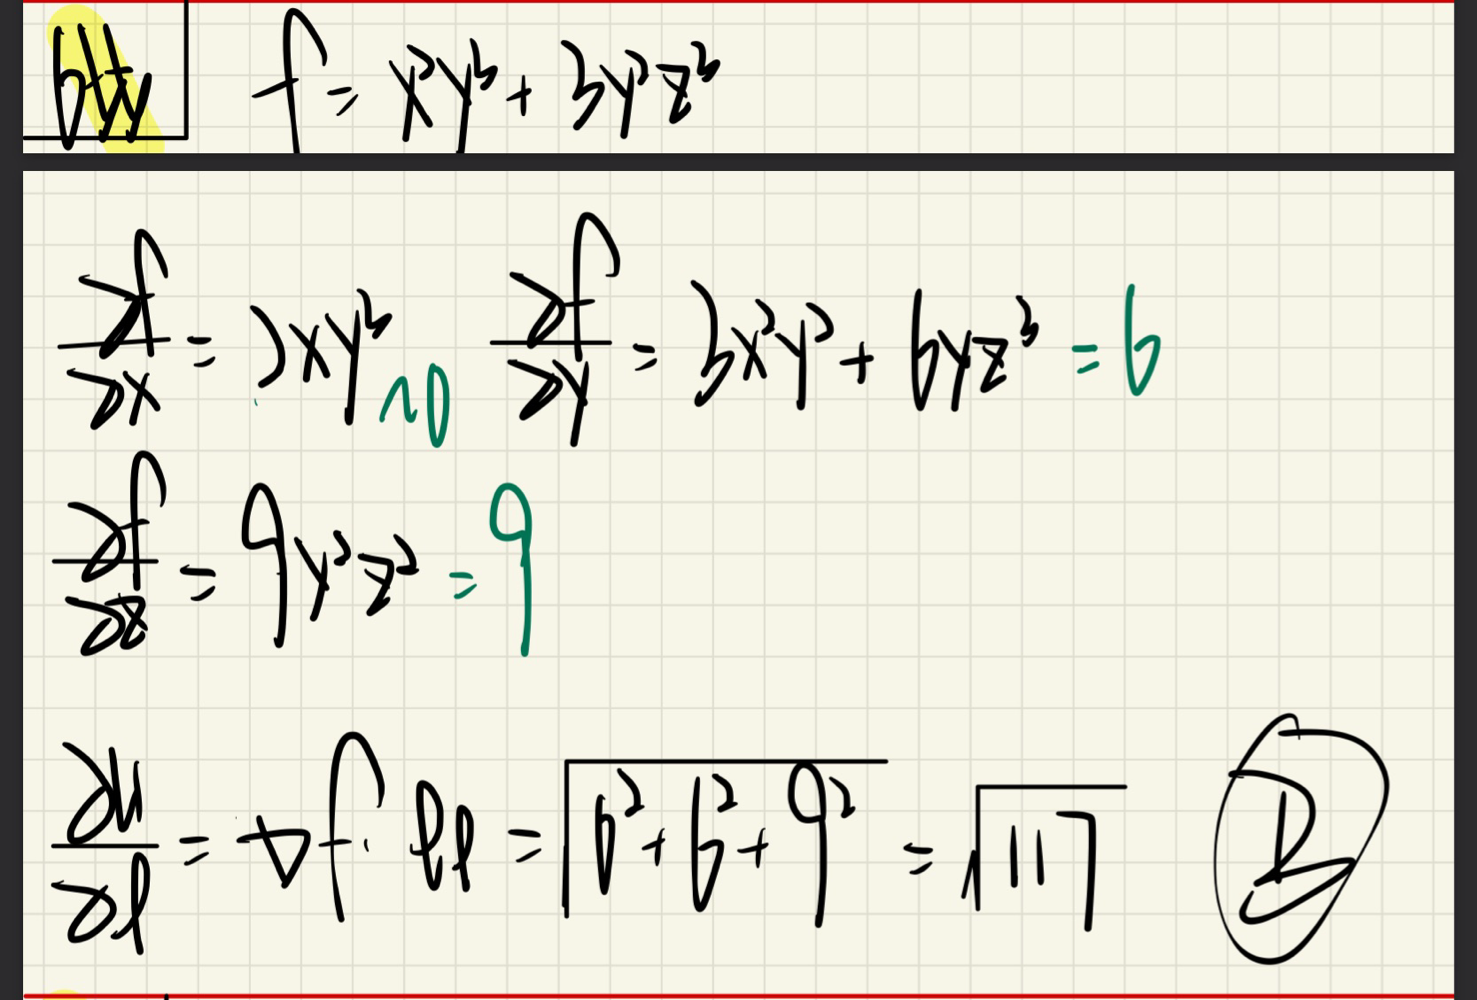 f = x²y³ + 3y²z³
∂f/∂x = 2xy³ = 0 ∂f/∂y = 3x²y² + 6yz³ = 6
∂f/∂z = 9y²z² = 9
∂u/∂l = ∇f · = √0² + 6² + 9² = √117 B